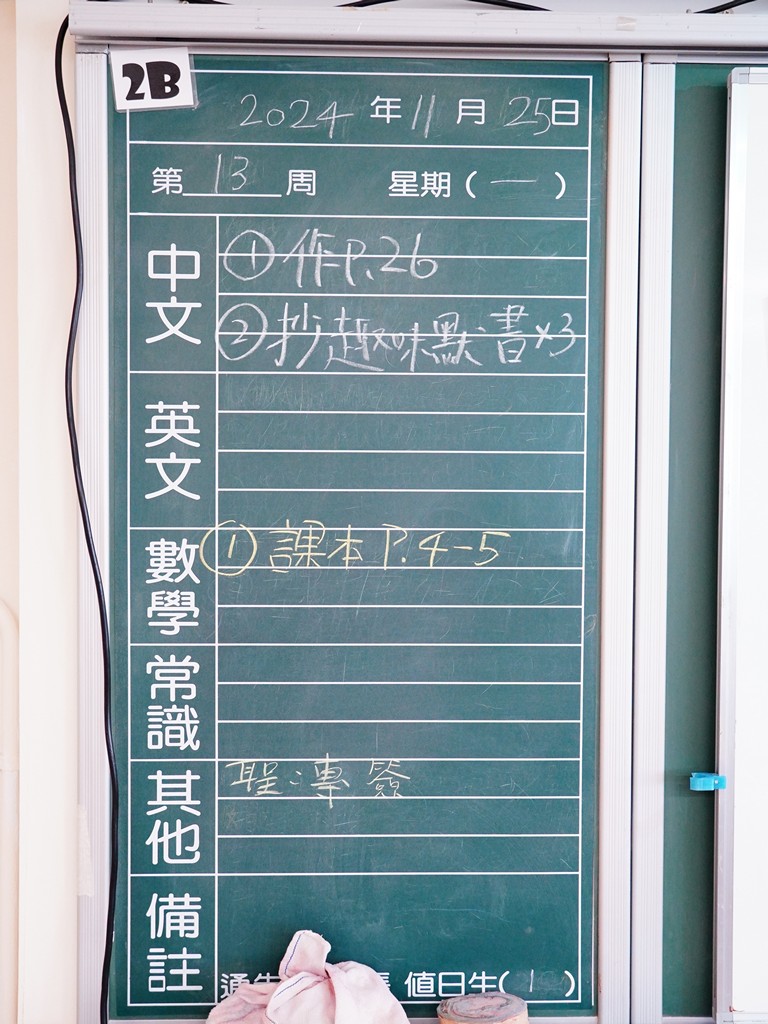 2B
2024年11月25日
第13周 星期(一)
中文
①作P.26
②抄趣味默書×3
英文
數學
①課本P.4-5
常識
其他
聖:專簽
備註
值日生(1)